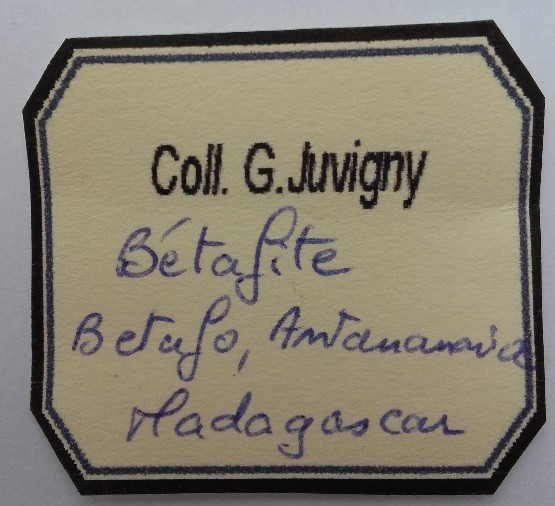 Coll. G. Juvigny
Bétafite
Betafo, Antananarivo
Madagascar